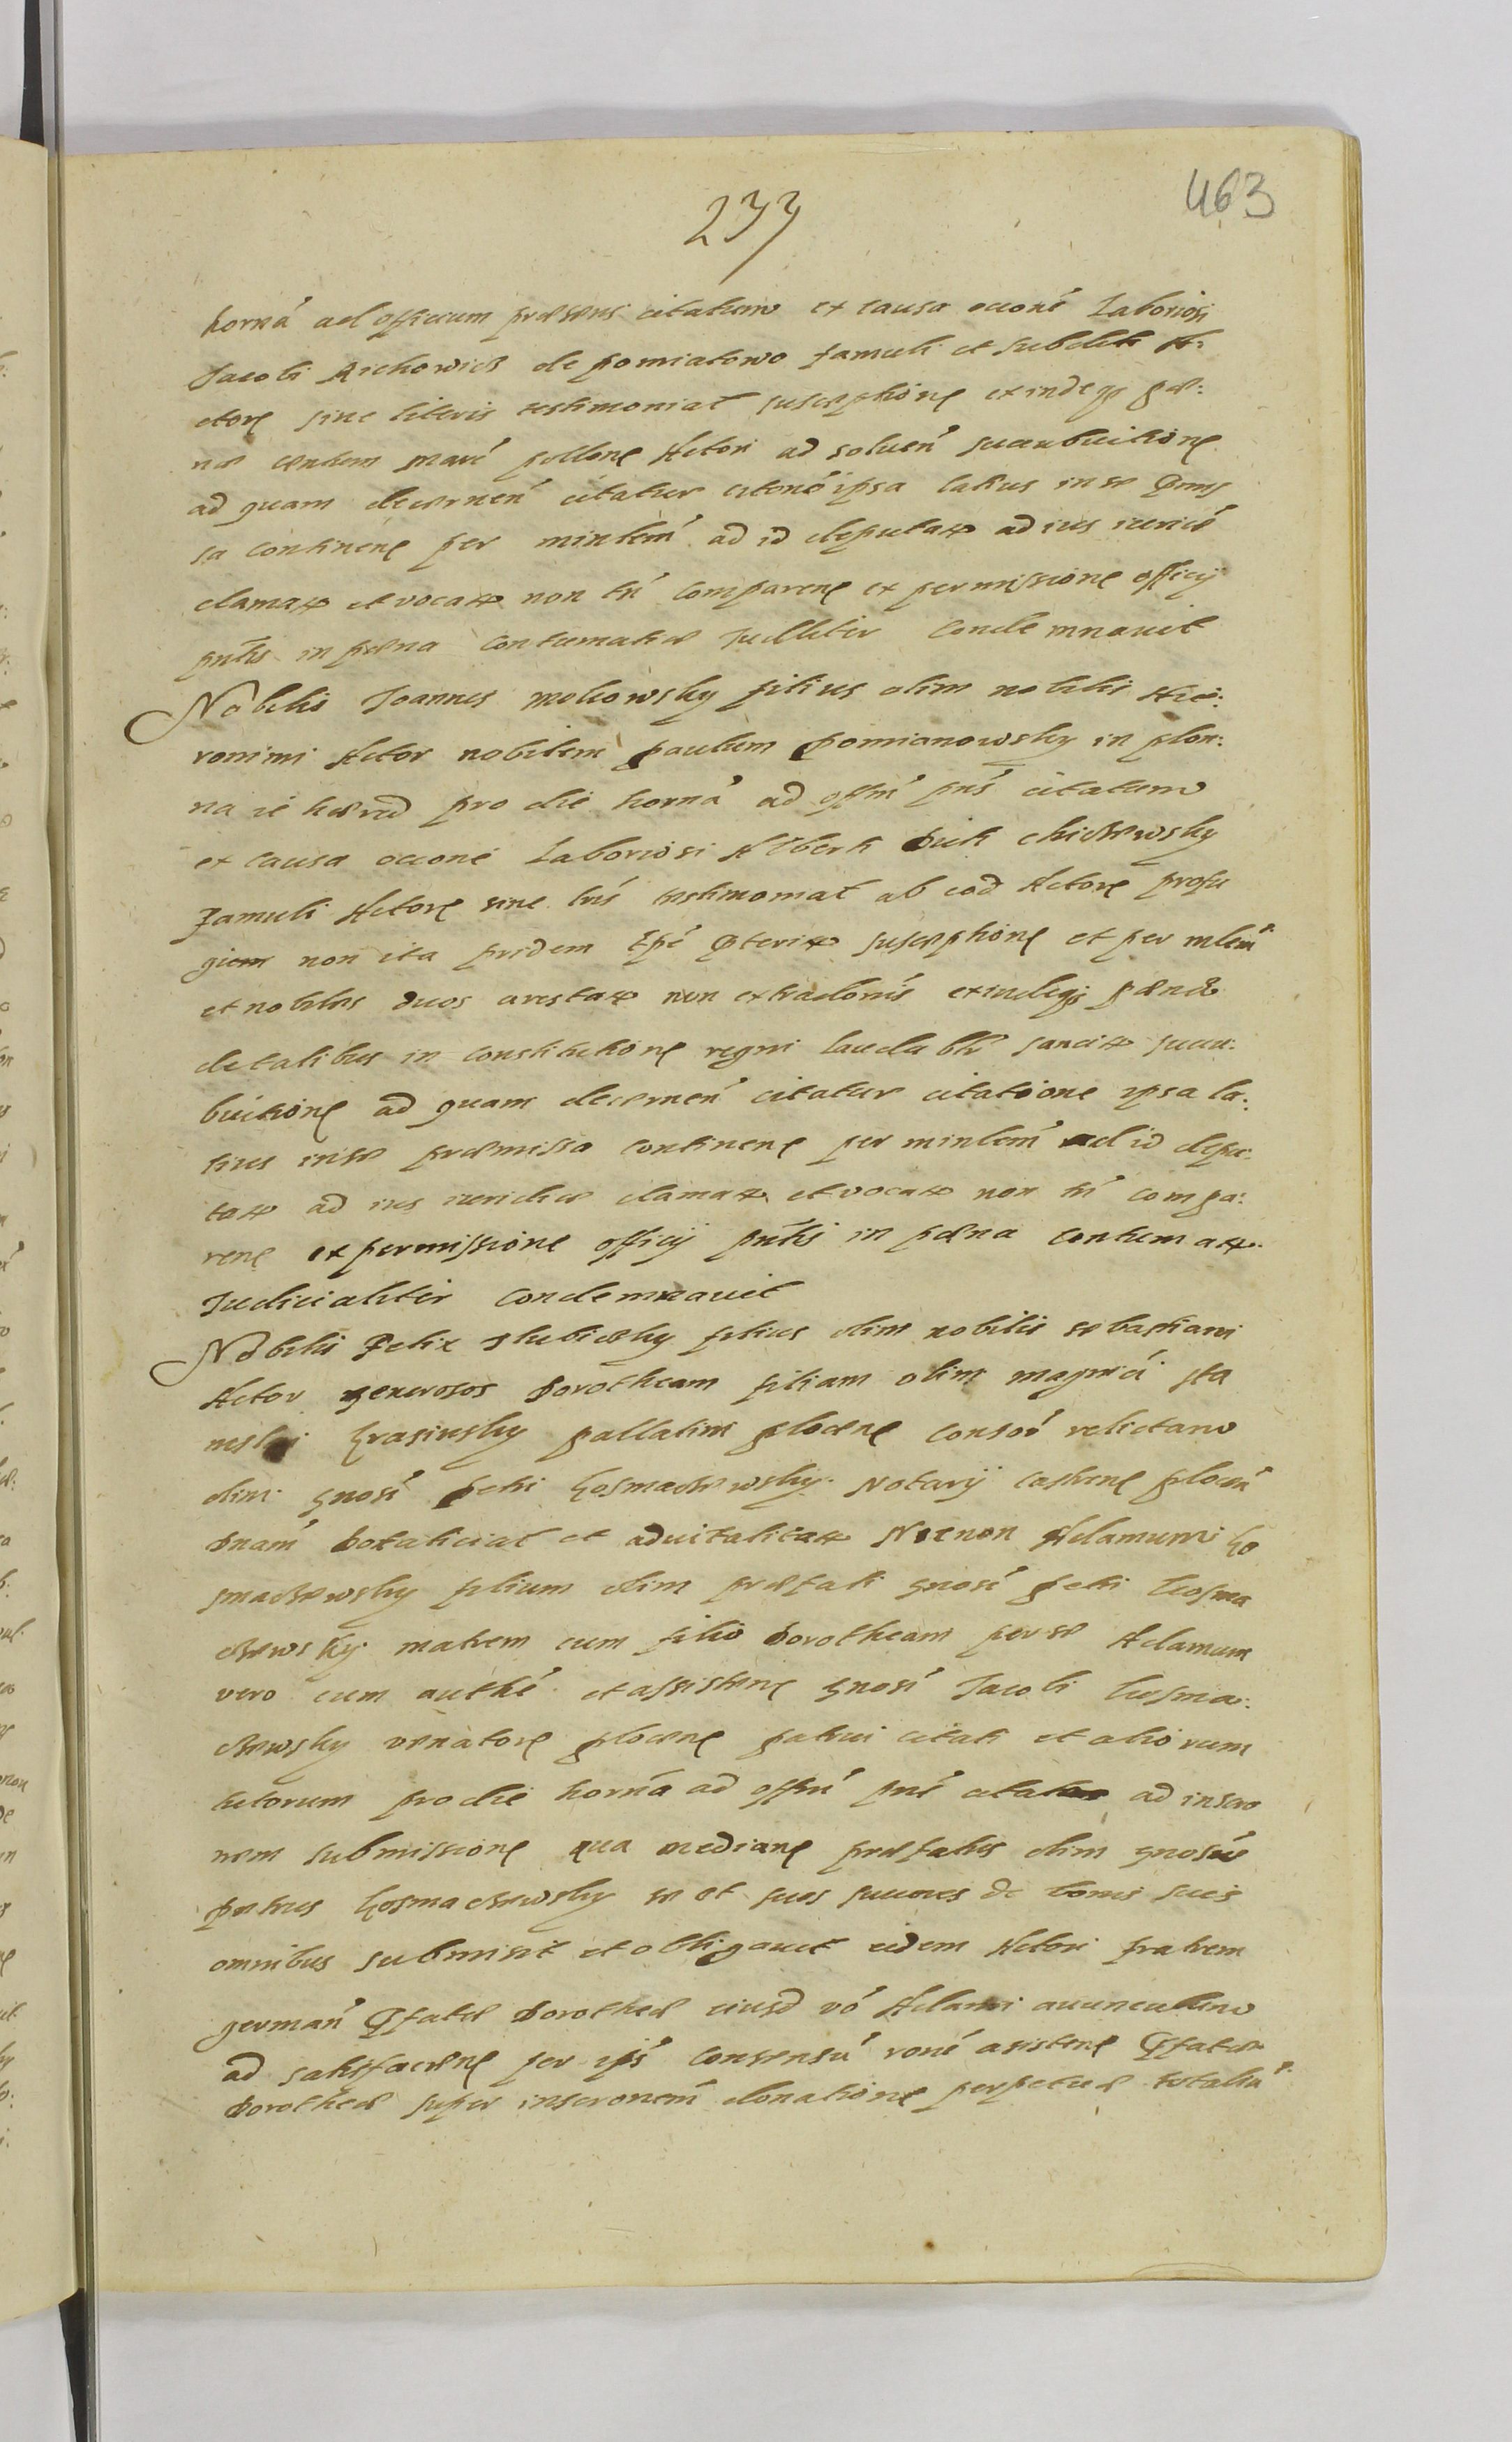 463
233
horná ad officium præsens citatum ex causa occoné Laboriosi
Jacobi Richowicz de pomiatowo famuli et subditi A:
ctoris sine literis testimonial susceptionis exindeq pæ:
næ centum marć pollonę Actori ad soluen succubuitionę
ad quam decernen citatur citonó ipsa latius in se præmis
sa continenę per minlem ad id deputatum ad ius iuridicé
clamatum et vocatum non tń comparenę ex permissione officij
pntis in pæna contumatiæ Judlitir condemnauit
Nobilis Joannes mokowsky filius olim nobilis Hie:
ronimi Actor nobilem paulum pomianowsky in plon:
na ić hæred pro die horná ad offm pns citatum
ex causa occoné Laboriosi Alberti Duk
famuli Actorę sine lris testimonial ab eod Actorę profu
gium non ita pridem tpé præteritum susceptionę et per mlem
et nobiles duos arestatum non extradonis exindeq pænæ
de talibus in constitutionę regni laudabłr sancitæ succu:
buitionę ad quam decernen citatur citatione ipsa la:
tius in se præmissa continenę per minlem ad id depu:
tatum ad ius iuridice clamatum et vocatum non tń compa:
renę ex permissione officij pntis in pæna contumatiæ
Judicialiter condemnauit
Nobilis Felix Slubicky filius olim nobilis sebastiani
Actor generosos Dorotheam filiam olim magnići sta
neslai Krasinsky pallatini plocenę consor relictam
olim gnosi petri Kosmaczewsky Notarij castrenę plocen
Dnam Dotalicial et aduitalitatum Necnon Adamum Ko
smaczewsky filium olim præfati gnosi petri Kosma
czewsky matrem cum filio Dorotheam per se Adamum
vero cum authe et assistenę gnosi Jacobi Kosma:
czewsky venatorę plocenę patrui citati et aliorum
tutorum pro die horná ad offm pns citatos ad inscro
nem submissionę qua medianę præfatus olim gnosus
petrus Kosmaczewsky se et suos succores de bonis suis
omnibus submisit et obligauit eidem Actori fratrem
german præfatæ Dorotheæ eiusd vó Adami auunculum
ad satisfacienę per ipś consensú roné asistenę præfatæ
Dorotheæ super inscronem donationę perpetuæ totaliú